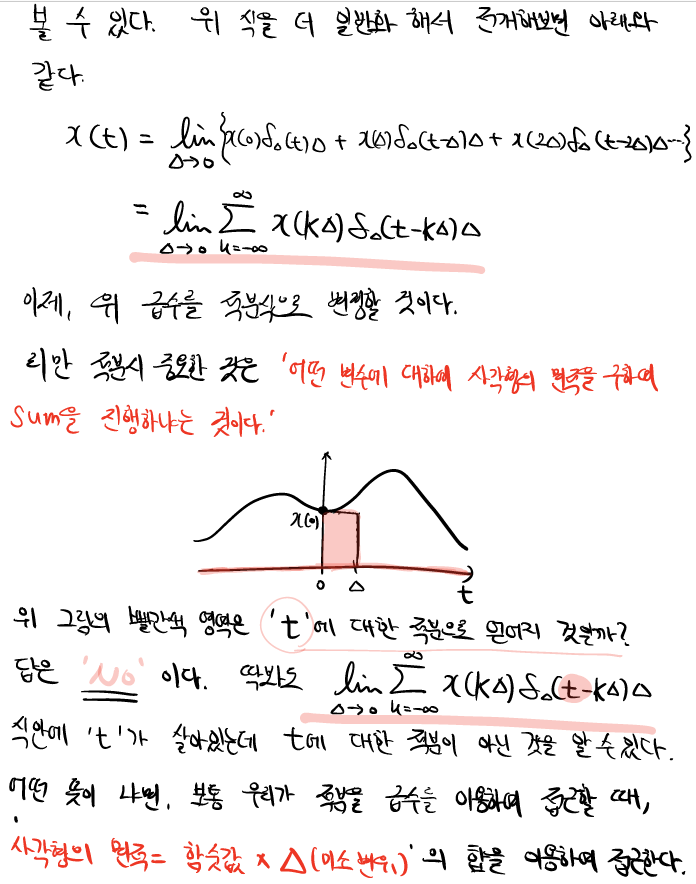 볼 수 있다. 위 식을 더 일반화 해서 전개해보면 아래와
같다.
x(t) = lim_{Δ→0} {x(0)δ_Δ(t)Δ + x(Δ)δ_Δ(t-Δ)Δ + x(2Δ)δ_Δ(t-2Δ)Δ…}
= lim_{Δ→0} Σ_{k=-∞}^{∞} x(kΔ)δ_Δ(t-kΔ)Δ
이제, 위 급수를 적분식으로 변경할 것이다.
리만 적분시 중요한 것은 '어떤 변수에 대하여 사각형의 면적을 구하여
Sum을 진행하냐는 것이다.'
x(0)
0 Δ t
위 그림의 빨간색 영역은 't'에 대한 적분으로 얻어진 것일까?
답은 'No' 이다. 딱봐도 lim_{Δ→0} Σ_{k=-∞}^{∞} x(kΔ)δ_Δ(t-kΔ)Δ
식안에 't'가 살아있는데 t에 대한 적분이 아닌 것을 알 수 있다.
어떤 뜻이 냐면, 보통 우리가 적분을 급수를 이용하여 접근할 때,
사각형의 면적 = 함숫값 × Δ(미소 변위)'의 합을 이용하여 접근한다.